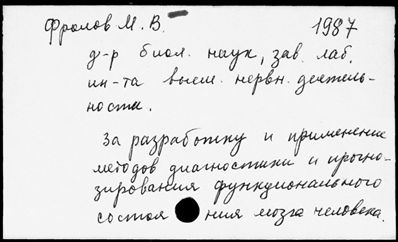 Фролов М. В. 1987
д-р биол. наук, зав. лаб.
ин-та высш. нервн. деятель-
ности.
За разработку и применение
методов диагностики и прогно-
зирования функционального
состоя ния мозга человека.